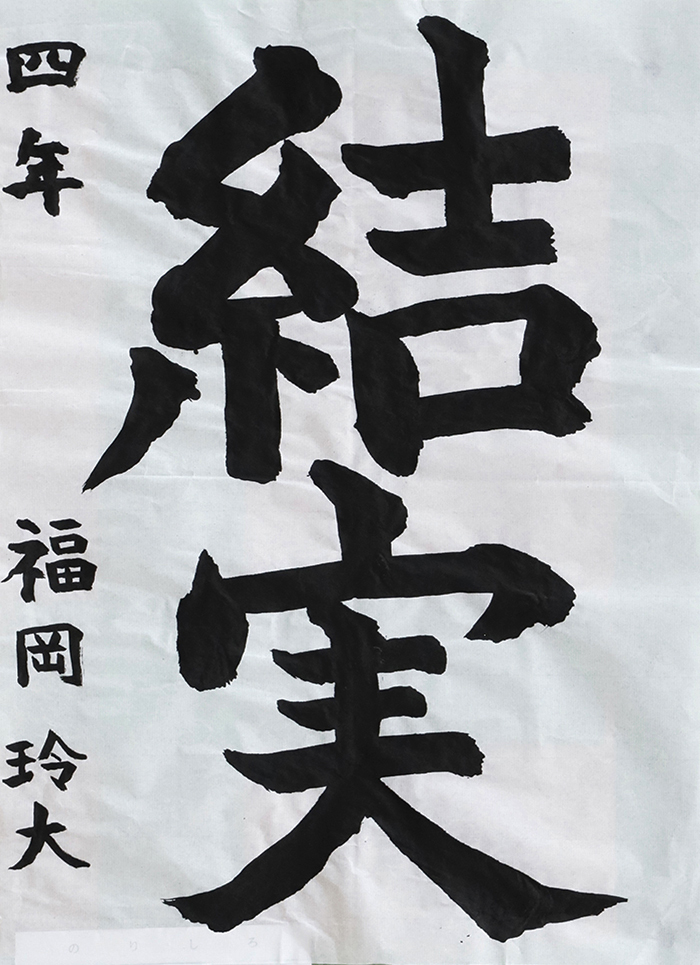 結実
四年 福岡玲大
のりしろ